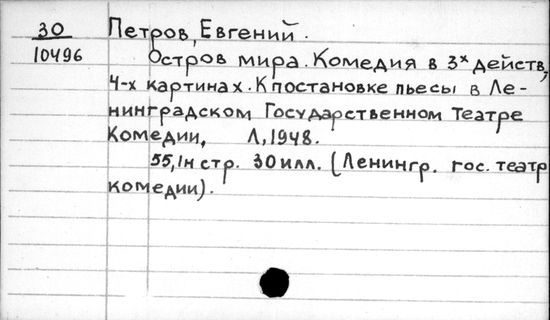 30 Петров, Евгений.
10496 Остров мира. Комедия в 3х действ,
4-х картинах. К постановке пьесы в Ле-
нинградском Государственном Театре
Комедии, Л, 1948.
55, 1н стр. 30 илл. (Ленингр. гос. театр
комедии).